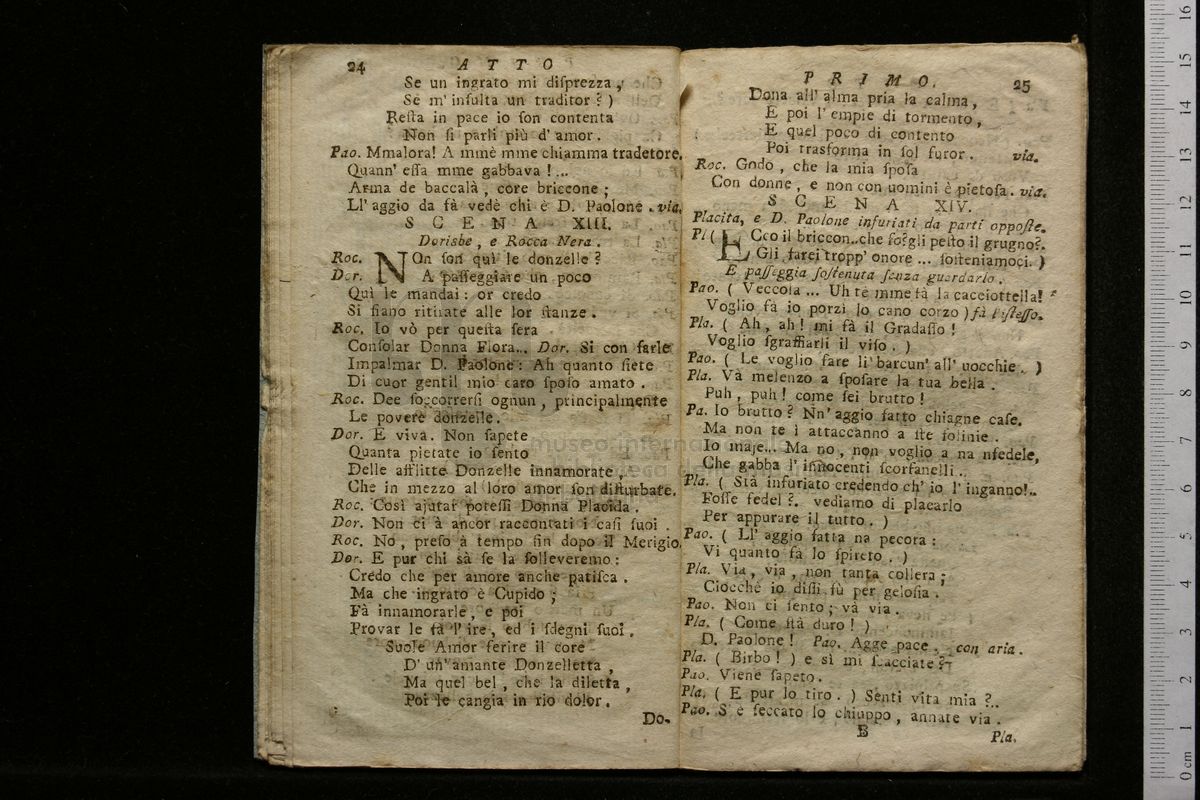 24 ATTO
Se un ingrato mi diſprezza,
Se m' inſulta un traditor? )
Reſta in pace io ſon contenta
Non ſi parli più d' amor.
Pao. Mmalora! A mmè mme chiamma tradetore,
Quann' eſſa mme gabbava!...
Arma de baccalà, core briccone;
Ll' aggio da fà vedè chi è D. Paolone. via.
SCENA XIII.
Dorisbe, e Rocca Nera.
Roc. NOn ſon quì le donzelle?
Dor. A paſſeggiare un poco
Quì le mandai: or credo
Si ſiano ritirate alle lor ſtanze.
Roc. Io vò per queſta ſera
Conſolar Donna Flora... Dor. Si con farle
Impalmar D. Paolone: Ah quanto ſiete
Di cuor gentil mio caro ſpoſo amato.
Roc. Dee ſoccorrerſi ognun, principalmente
Le povere donzelle.
Dor. E viva. Non ſapete
Quanta pietate io ſento
Delle afflitte Donzelle innamorate,
Che in mezzo al loro amor ſon diſturbate.
Roc. Così ajutar poteſſi Donna Placida.
Dor. Non ci à ancor raccontati i caſi ſuoi.
Roc. No, preſo à tempo fin dopo il Merigio.
Dor. E pur chi sà ſe la ſolleveremo:
Credo che per amore anche patiſca.
Ma che ingrato è Cupido;
Fà innamorarle, e poi
Provar le fà l' ire, ed i ſdegni ſuoi.
Suole Amor ferire il core
D' un' amante Donzelletta,
Ma quel bel, che la diletta,
Poi le cangia in rio dolor.
Do-
PRIMO. 25
Dona all' alma pria la calma,
E poi l' empie di tormento,
E quel poco di contento
Poi trasforma in ſol furor. via.
Roc. Godo, che la mia ſpoſa
Con donne, e non con uomini è pietoſa. via.
SCENA XIV.
Placita, e D. Paolone infuriati da parti oppoſte.
Pl. ( ECco il briccon..che fo?gli peſto il grugno?.
Gli farei tropp' onore ... ſoſteniamoci. )
E paſſeggia ſoſtenuta ſenza guardarlo.
Pao. ( Veccola ... Uh tè mme fà la cacciottella!
Voglio fà io porzì lo cano corzo ) fà l'iſteſſo.
Pla. ( Ah, ah! mi fà il Gradaſſo!
Voglio ſgraffiarli il viſo. )
Pao. ( Le voglio fare li' barcun' all' uocchie. )
Pla. Và melenzo a ſpoſare la tua bella.
Puh, puh! come ſei brutto!
Pa. Io brutto? Nn' aggio fatto chiagne caſe.
Ma non te ì attaccanno a ſte ſolinie.
Io maje... Ma no, non voglio a na nfedele,
Che gabba l' innocenti ſcorfanelli.
Pla. ( Stà infuriato credendo ch' io l' inganno!..
Foſſe fedel?. vediamo di placarlo
Per appurare il tutto. )
Pao. ( Ll' aggio fatta na pecora:
Vi quanto fà lo ſpireto. )
Pla. Via, via, non tanta collera;
Ciocchè io diſſi fù per geloſia.
Pao. Non ci ſento; và via.
Pla. ( Come ſtà duro! )
D. Paolone! Pao. Agge pace. con aria.
Pla. ( Birbo! ) e sì mi ſcacciate?
Pao. Viene ſapeto.
Pla. ( E pur lo tiro. ) Senti vita mia?..
Pao. S' è ſeccato lo chiuppo, annate via.
B Pla.